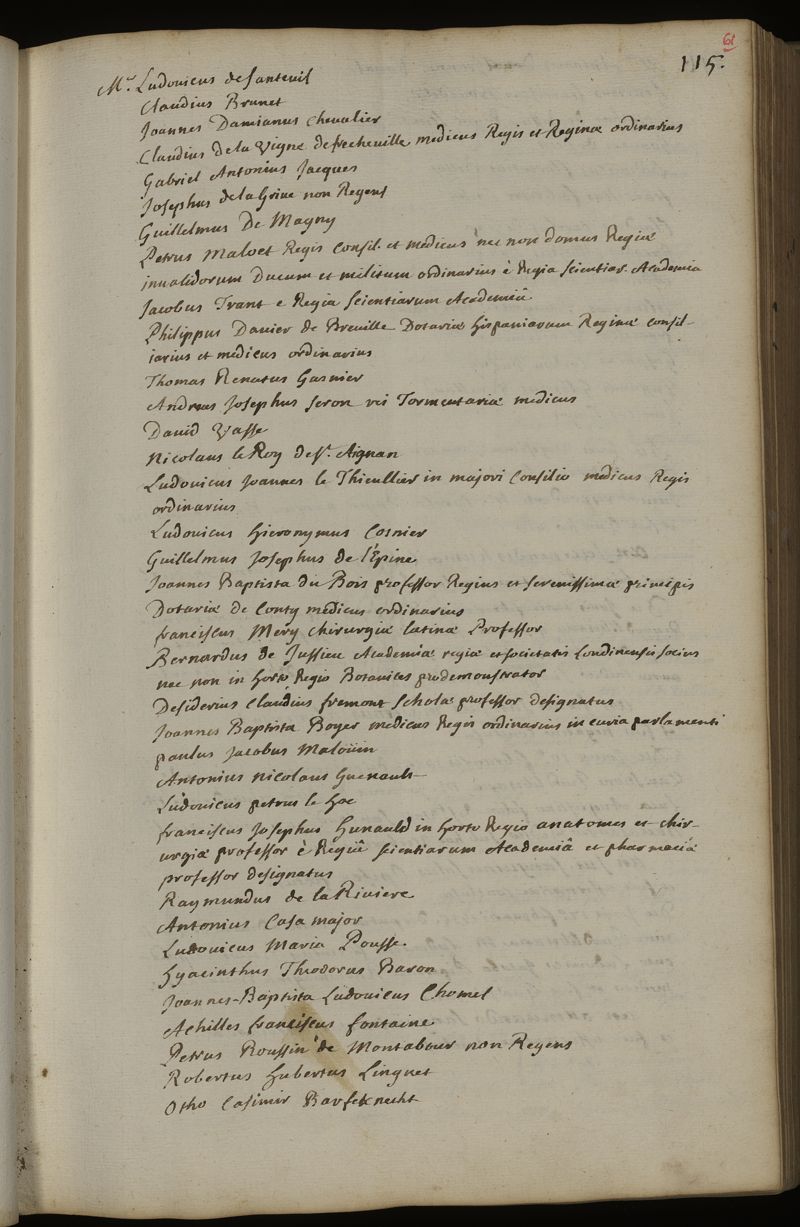 61
115.
Mr. Ludovicus de santeuil
Claudius Brunet
Joannes Damianus Chevalier
Claudius De la Vigne defrecheville medicus Regis et Reginæ ordinarius
Gabriel Antonius Jacques
Josephus de la Grive non Regens
Guillelmus De Magny
Petrus Maloet Regis Consil. et medicus nec non domus Regiæ
invalidorum Ducum et militum ordinarius è Regia scientiar. Academia
Jacobus Trant e Regia scientiarum Academiâ
Philippus Davier de Breville Dotariæ hispaniarum Reginæ consil-
iarius et medicus ordinarius
Thomas Renatus Gasnier
Andreas Josephus seron rei Tormentariæ medicus
David Vasse
Nicolaus le Roy de St. Aignan
Ludovicus Joannes le Thieullier in majori Consilio medicus Regis
ordinarius
Ludovicus hieronymus Cosnier
Guillelmus Josephus de l'Epine
Joannes Baptista du Bois professor Regius et serenissimæ principis
Dotariæ de Conty medicus ordinarius
franciscus Mery chirurgiæ latinæ Professor
Bernardus de Jussieu Academiæ regiæ et societatis Londinensis socius
nec non in horto Regio Botanices prodemonstrator
Desiderius Claudius fremont scholæ professor designatus
Joannes Baptista Boyer medicus Regis ordinarius in curia parlamenti
paulus Jacobus Maloüin
Antonius Nicolaus Guenault
Ludovicus petrus le hoc
franciscus Josephus Hunauld in horto Regio anatomes et chir-
urgiæ professor è Regiâ scientiarum Academiâ et pharmaciæ
professor designatus
Raymundus de la Riviere
Antonius Casamajor
Ludovicus Maria Pousse.
hyacinthus Theodorus Baron
Joannes-Baptista Ludovicus Chomel
Achilles franciscus fontaine
Petrus Roussin de Montabour non Regens
Robertus hubertus Linguet
Otho Casimir Barfeknecht